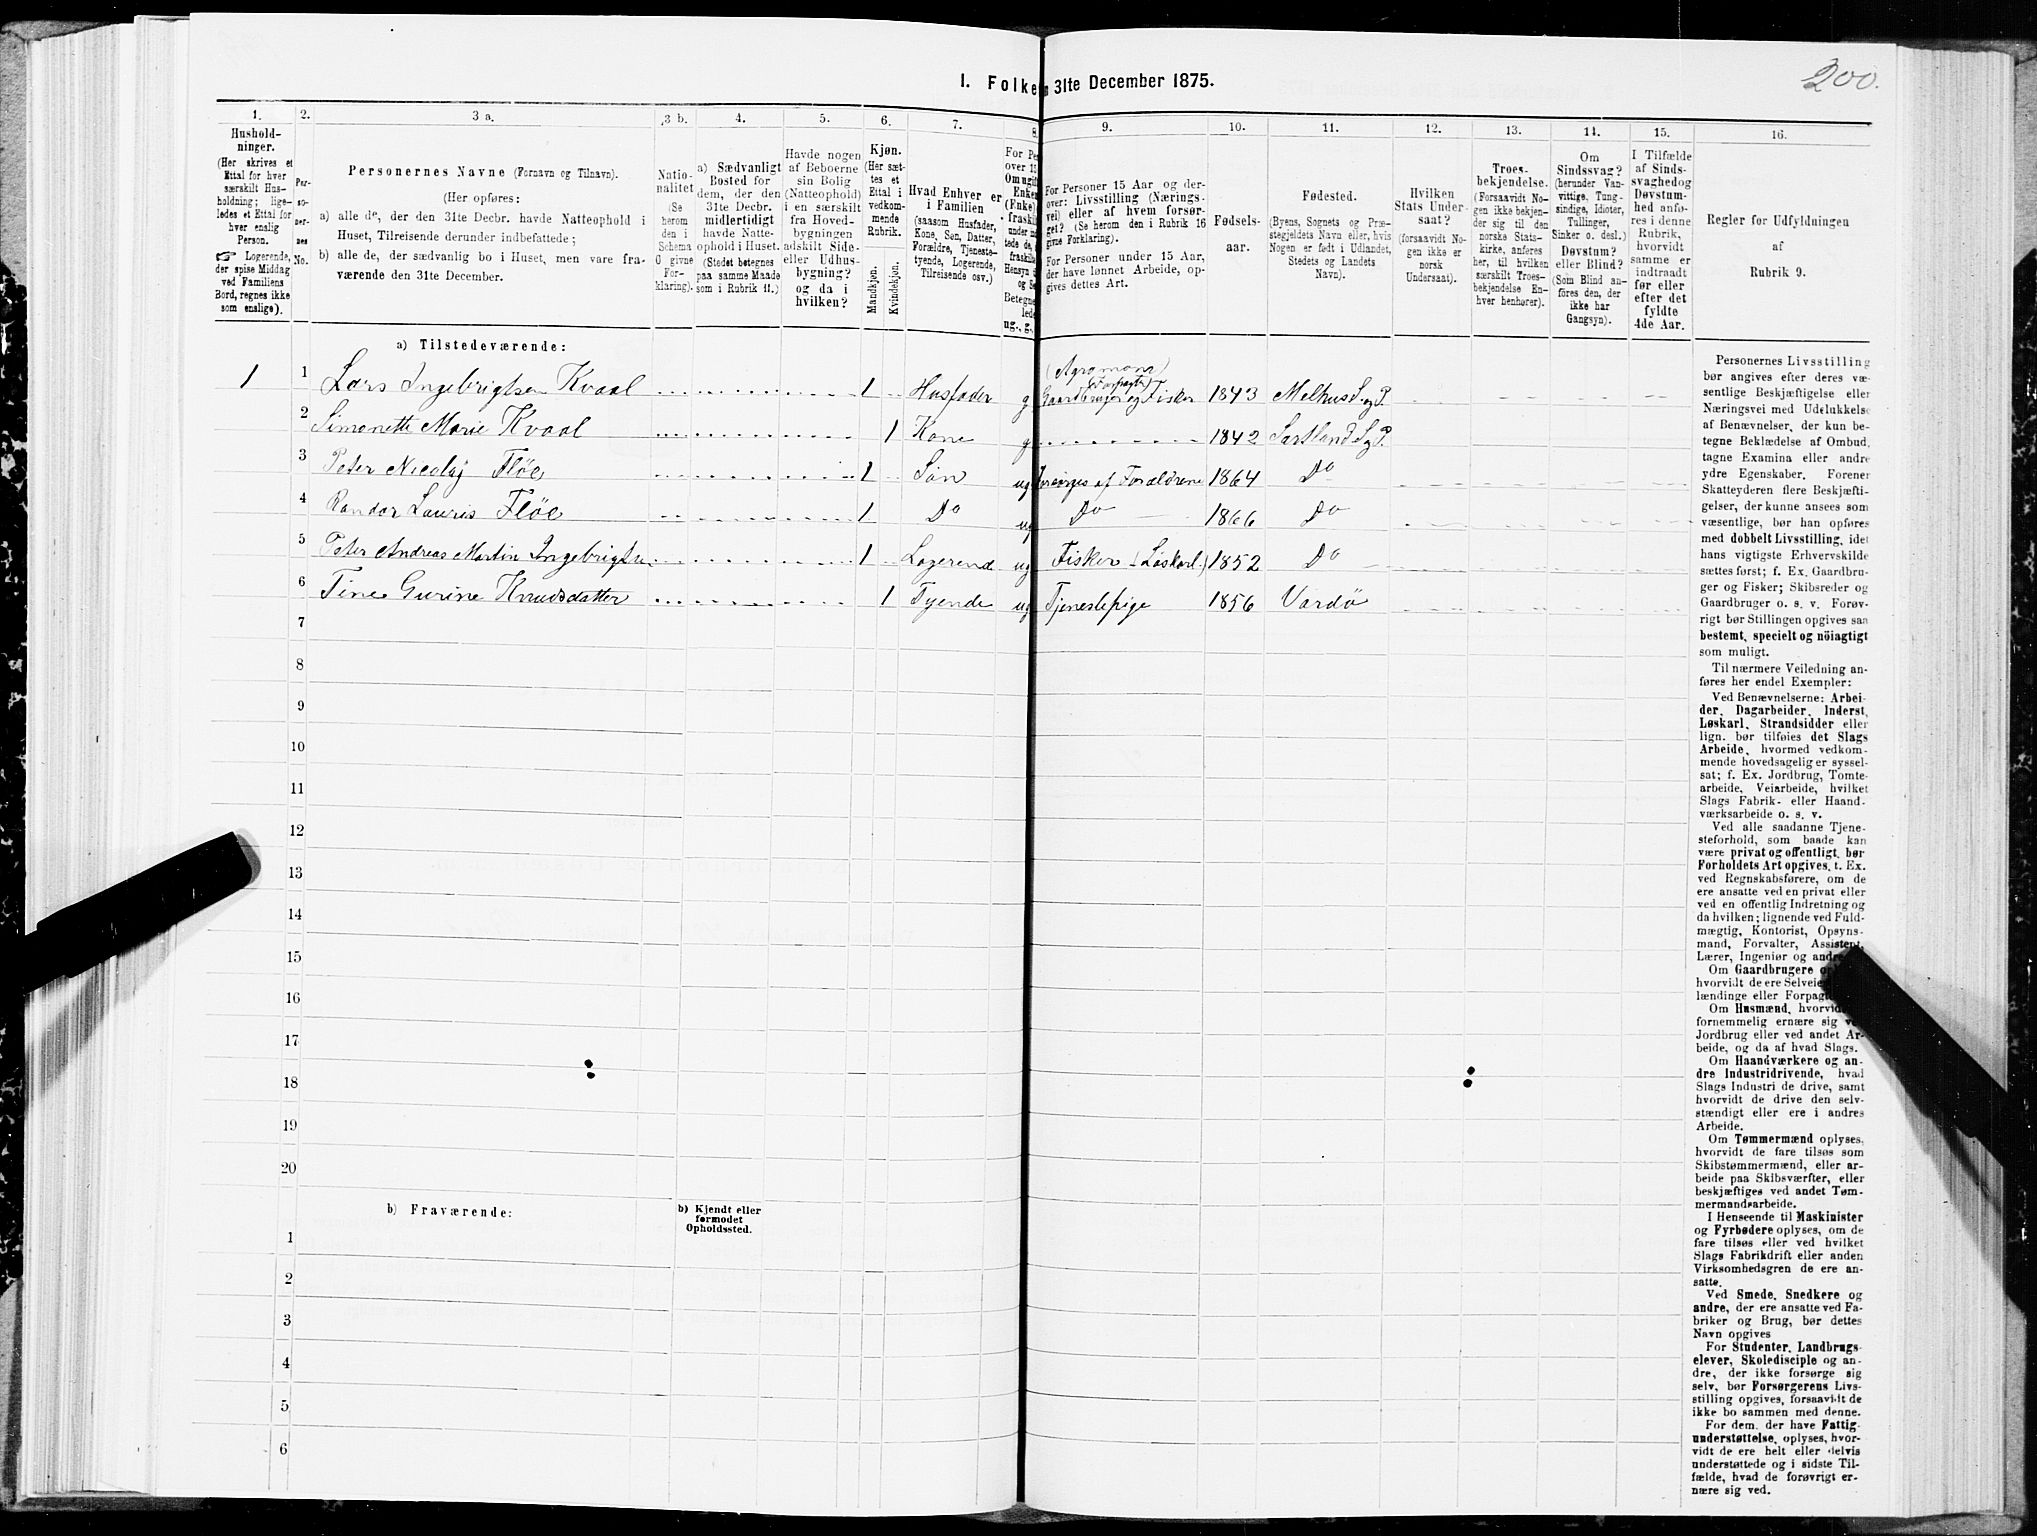 200.
I. Folke n 31te December 1875.
1. 2. 3 a. 3 b. 4. 5. 6. 7. 8. 9. 10. 11. 12. 13. 14. 15. 16.
Hushold-
ninger.
(Her skrives et
Ettal for hver
særskilt Hus-
holdning; lige-
ledes et Ettal for
hver enslig
Person.
☞ Logerende,
der spise Middag
ved Familiens
Bord, regnes ikke
som enslige).
Per-
so-
ner-
nes
No.
Personernes Navne (Fornavn og Tilnavn).
(Her opføres:
a) alle de, der den 31te Decbr. havde Natteophold i
Huset, Tilreisende derunder indbefattede;
b) alle de, der sædvanlig bo i Huset, men vare fra-
værende den 31te December.
Natio-
nalitet
(Se
herom
den i
Schema
G givne
For-
klaring).
a) Sædvanligt
Bosted for
dem, der den
31te Decbr.
midlertidigt
havde Natte-
ophold i Huset.
(Stedet betegnes
paa samme Maade
som i Rubrik 11.)
Havde nogen
af Beboerne
sin Bolig
(Natteophold)
i en særskilt
fra Hoved-
bygningen
adskilt Side-
eller Udhus-
bygning?
og da i
hvilken?
Kjøn.
(Her sæt-
tes et
Ettal i
vedkom-
mende
Rubrik.
Mandkjøn.
Kvindekjøn.
Hvad Enhver er
i Familien
(saasom Husfader,
Kone, Søn, Datter,
Forældre, Tjeneste-
tyende, Logerende,
Tilreisende osv.)
For Pe
over 15
Omugift
Enke
(Enke)
fraskil
under
tede de,
fraskille
Hensyn
og Se
Betegne
lede
ug., g.,
For Personer 15 Aar og der-
over: Livsstilling (Nærings-
vei) eller af hvem forsør-
get? (Se herom den i Rubrik 16
givne Forklaring).
For Personer under 15 Aar,
der have lønnet Arbeide, op-
gives dettes Art.
Fødsels-
aar.
Fødested.
(Byens, Sognets og Præ-
stegjeldets Navn eller, hvis
Nogen er født i Udlandet,
Stedets og Landets
Navn).
Hvilken
Stats Under-
saat?
(forsaavidt No-
gen ikke er
norsk
Undersaat).
Troes-
bekjendelse.
(Forsaavidt No-
gen ikke bekjen-
der sig til den
norske Stats-
kirke, anføres
her, til hvilken
særskilt Troes-
bekjendelse En-
hver henhører).
Om
Sindssvag?
(herunder Van-
vittige, Tung-
sindige, Idioter,
Tullinger,
Sinker o. desl.)
Døvstum?
eller Blind?
(Som Blind an-
føres den, der
ikke har
Gangsyn).
I Tilfælde
af Sinds-
svaghed og
Døvstum-
hed anfø-
res i denne
Rubrik,
hvorvidt
samme er
indtraadt
før eller
efter det
fyldte
4de Aar.
Regler for Udfyldningen
af
Rubrik 9.
a) Tilstedeværende:
(Agronom)
(Forpagter)
1 1 Lars Ingebrigtsen Kvaal 1 Husfader g Gaardbruger og Fisker 1843 Melhus S. og P.
2 Simonette Marie Kvaal 1 Kone g 1842 Sortland S. og P.
3 Peter Nicolaj Fløe 1 Søn ug Forsørges af Forældrene 1864 Do
4 Randor Lauris Fløe 1 Do ug Do 1866 Do
5 Peter Andreas Martin Ingebrigtsen 1 Logerende ug Fisker (Løskarl.) 1852 Do
6 Tine Gurine Knudsdatter 1 Tyende ug Tjenestepige 1856 Vardö
7
8
9
10
11
12
13
14
15
16
17
18
19
20
b) Fraværende:
b) Kjendt eller
formodet
Opholdssted.
1
2
3
4
5
6
Personernes Livsstilling
bør angives efter deres væ-
sentlige Beskjæftigelse eller
Næringsvei med Udelukkelse
af Benævnelser, der kun be-
tegne Beklædelse af Ombud,
tagne Examina eller andre
ydre Egenskaber. Forener
Skatteyderen flere Beskjæfti-
gelser, der kunne ansees som
væsentlige, bør han opføres
med dobbelt Livsstilling, idet
hans vigtigste Erhvervskilde
sættes først; f. Ex. Gaardbru-
ger og Fisker; Skibsreder og
Gaardbruger o. s. v. Forøv-
rigt bør Stillingen opgives saa
bestemt, specielt og nöiagtigt
som muligt.
Til nærmere Veiledning an-
føres her endel Exempler:
Ved Benævnelserne: Arbei-
der, Dagarbeider, Inderst,
Løskarl, Strandsidder eller
lign. bør tilføies det Slags
Arbeide, hvormed vedkom-
mende hovedsagelig er syssel-
sat; f. Ex. Jordbrug, Tomte-
arbeide, Veiarbeide, hvilket
Slags Fabrik- eller Haand-
værksarbeide o. s. v.
Ved alle saadanne Tjene-
steforhold, som baade kan
være privat og offentligt, bør
Forholdets Art opgives, t. Ex.
ved Regnskabsførere, om de
ere ansatte ved en privat eller
ved en offentlig Indretning og
da hvilken; lignende ved Fuld-
mægtig, Kontorist, Opsyns-
mand, Forvalter, Assistent,
Lærer, Ingeniør og andre
Om Gaardbrugere
hvorvidt de ere Selveie
lændinge eller Forpagt
Om Husmænd, hvorvid
fornemmelig ernære sig
Jordbrug eller ved andet Ar-
beide, og da af hvad Slags.
Om Haandværkere og an-
dre Industridrivende, hvad
Slags Industri de drive, samt
hvorvidt de drive den selv-
stændigt eller ere i andres
Arbeide.
Om Tømmermænd oplyses,
hvorvidt de fare tilsøs som
Skibstømmermænd, eller ar-
beide paa Skibsværfter, eller
beskjæftiges ved andet Tøm-
mermandsarbeide.
I Henseende til Maskinister
og Fyrbødere oplyses, om de
fare tilsøs eller ved hvilket
Slags Fabrikdrift eller anden
Virksomhedsgren de ere an-
satte.
Ved Smede, Snedkere og
andre, der ere ansatte ved Fa-
briker og Brug, bør dettes
Navn opgives
For Studenter, Landbrugs-
elever, Skoledisciple og an-
dre, der ikke forsørge sig
selv, bør Forsørgerens Livs-
stilling opgives, forsaavidt de
ikke bo sammen med denne.
For dem, der have Fattig-
understøttelse, oplyses, hvor-
vidt de ere helt eller delvis
understøttede og i sidste Til-
fælde, hvad de forøvrigt er-
nære sig ved.